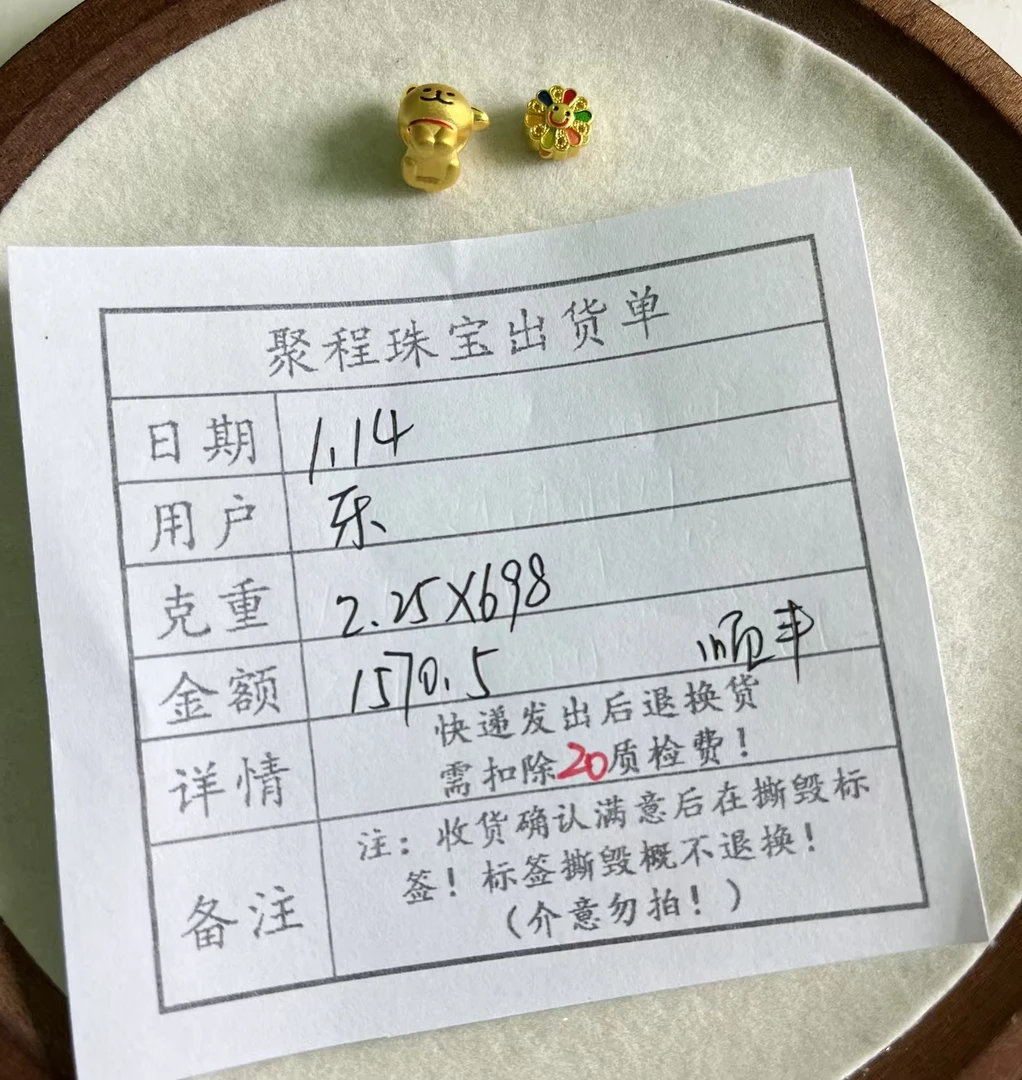 聚程珠宝出货单
日期 1.14
用户 乐
克重 2.25X698
金额 1570.5 顺丰
详情 快递发出后退换货
需扣除20质检费！
备注 注：收货确认满意后在撕毁标
签！标签撕毁概不退换！
（介意勿拍！）